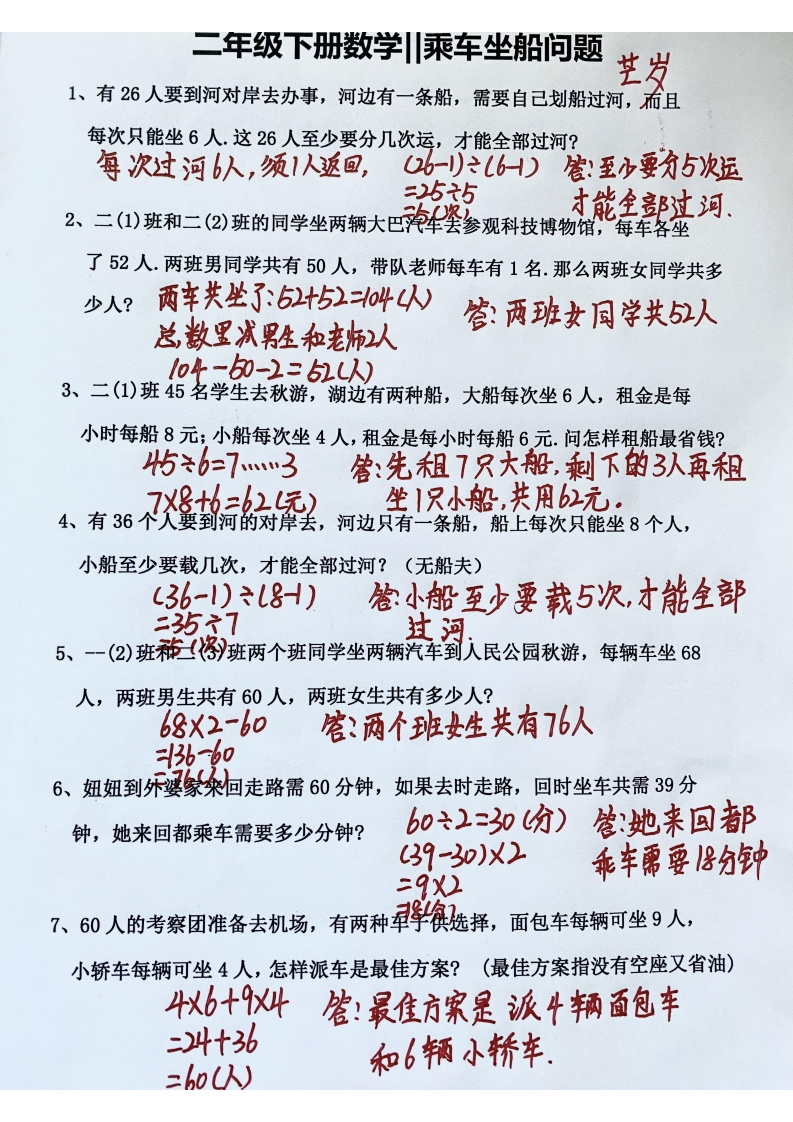 二年级下册数学||乘车坐船问题
芒岁
1、有26人要到河对岸去办事，河边有一条船，需要自己划船过河，而且
每次只能坐6人.这26人至少要分几次运，才能全部过河?
每次过河6人，须1人返回，(26-1)÷(6-1) 答:至少要分5次运
=25÷5 才能全部过河.
=5(次)
2、二(1)班和二(2)班的同学坐两辆大巴汽车去参观科技博物馆，每车各坐
了52人.两班男同学共有50人，带队老师每车有1名.那么两班女同学共多
少人? 两车共坐了:52+52=104(人) 答:两班女同学共52人
总数里减男生和老师2人
104-50-2=52(人)
3、二(1)班45名学生去秋游，湖边有两种船，大船每次坐6人，租金是每
小时每船8元；小船每次坐4人，租金是每小时每船6元.问怎样租船最省钱?
45÷6=7……3 答:先租7只大船，剩下的3人再租
7×8+6=62(元) 坐1只小船，共用62元。
4、有36个人要到河的对岸去，河边只有一条船，船上每次只能坐8个人，
小船至少要载几次，才能全部过河?(无船夫)
(36-1)÷(8-1) 答:小船至少要载5次，才能全部
=35÷7 过河.
=5(次)
5、--(2)班和二(3)班两个班同学坐两辆汽车到人民公园秋游，每辆车坐68
人，两班男生共有60人，两班女生共有多少人?
68×2-60 答:两个班女生共有76人
=136-60
=76(人)
6、妞妞到外婆家来回走路需60分钟，如果去时走路，回时坐车共需39分
钟，她来回都乘车需要多少分钟? 60÷2=30(分) 答:她来回都
(39-30)×2 乘车需要18分钟
=9×2
=18(分)
7、60人的考察团准备去机场，有两种车子供选择，面包车每辆可坐9人，
小轿车每辆可坐4人，怎样派车是最佳方案? (最佳方案指没有空座又省油)
4×6+9×4 答:最佳方案是派4辆面包车
=24+36 和6辆小轿车.
=60(人)